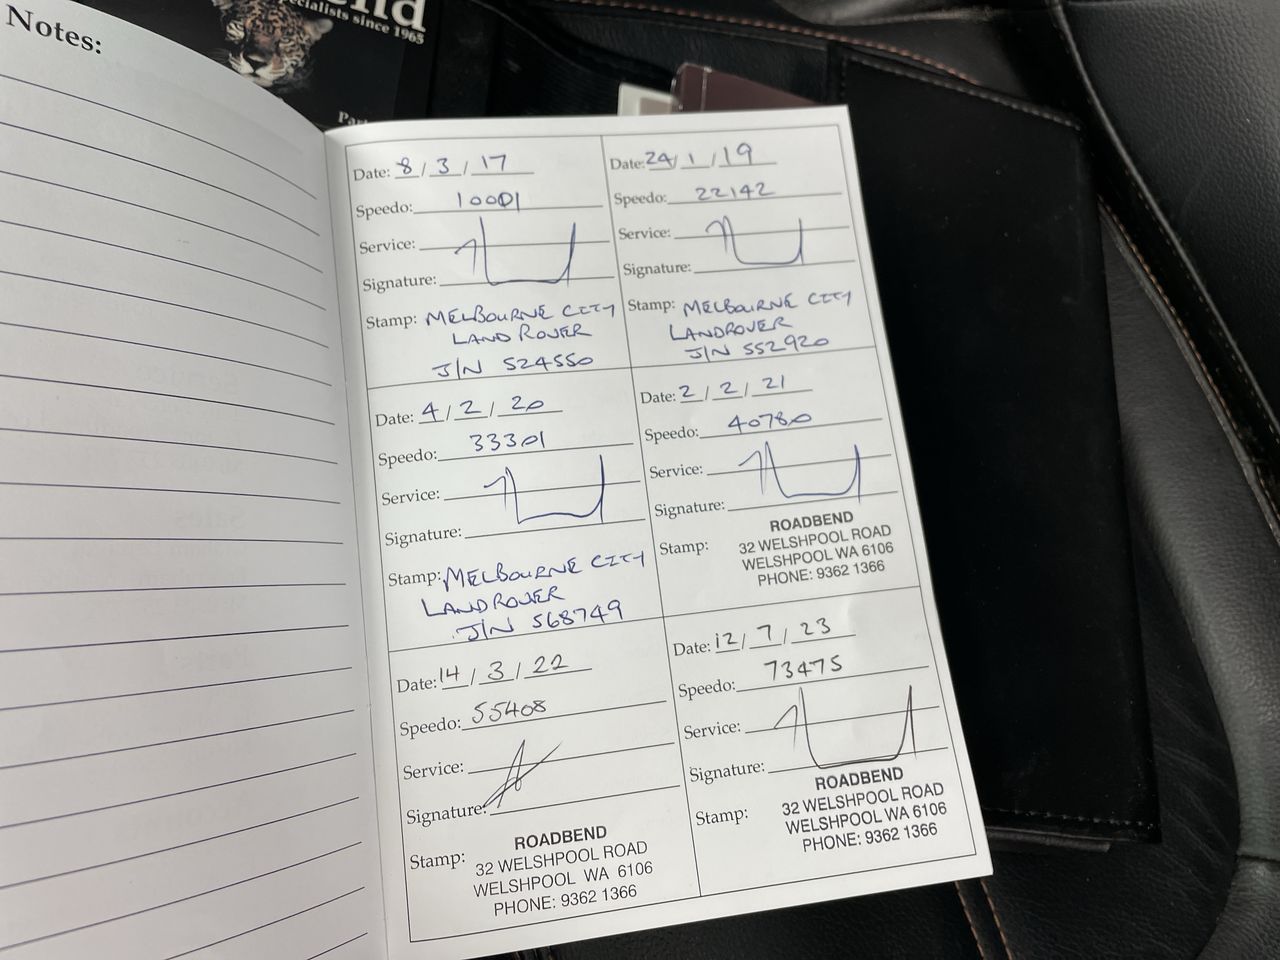 Notes:
cialists since 1965
Date: 8/3/17
Speedo: 10001
Service:
Signature:
Stamp: MELBOURNE CITY
LAND ROVER
J/N 524550
Date: 24/1/19
Speedo: 22142
Service:
Signature:
Stamp: MELBOURNE CITY
LANDROVER
J/N 552920
Date: 4/2/20
Speedo: 33301
Service:
Signature:
Stamp: MELBOURNE CITY
LANDROVER
J/N 568749
Date: 2/2/21
Speedo: 40780
Service:
Signature:
Stamp:
ROADBEND
32 WELSHPOOL ROAD
WELSHPOOL WA 6106
PHONE: 9362 1366
Date: 14/3/22
Speedo: 55408
Service:
Signature:
Stamp:
ROADBEND
32 WELSHPOOL ROAD
WELSHPOOL WA 6106
PHONE: 9362 1366
Date: 12/7/23
Speedo: 73475
Service:
Signature:
Stamp:
ROADBEND
32 WELSHPOOL ROAD
WELSHPOOL WA 6106
PHONE: 9362 1366